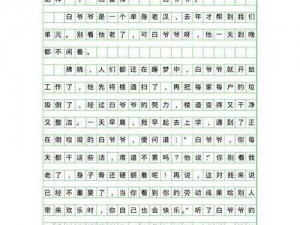 白爷爷是一个单身老汉，去年才帮到我们
单元。别看他老了，可白爷爷呀，他一天到晚
都不闲着。
拂晓，人们都还在睡梦中，白爷爷就开始
工作了，他先将楼道扫了，再把每家每户的垃
圾倒了。经过白爷爷的努力，楼道变得又干净
又整洁。一天早晨，我早起去上学，遇到了正在
倒垃圾的白爷爷，便问道：“白爷爷，你每
天都干这些活，难道不累吗？”他说：“你别看我
老了，身子骨还硬朗着呢！再说，这对我来说
已经不重要了，当你看到你的劳动成果给别人
带来欢乐时，你自己也会快乐。”听了白爷爷的